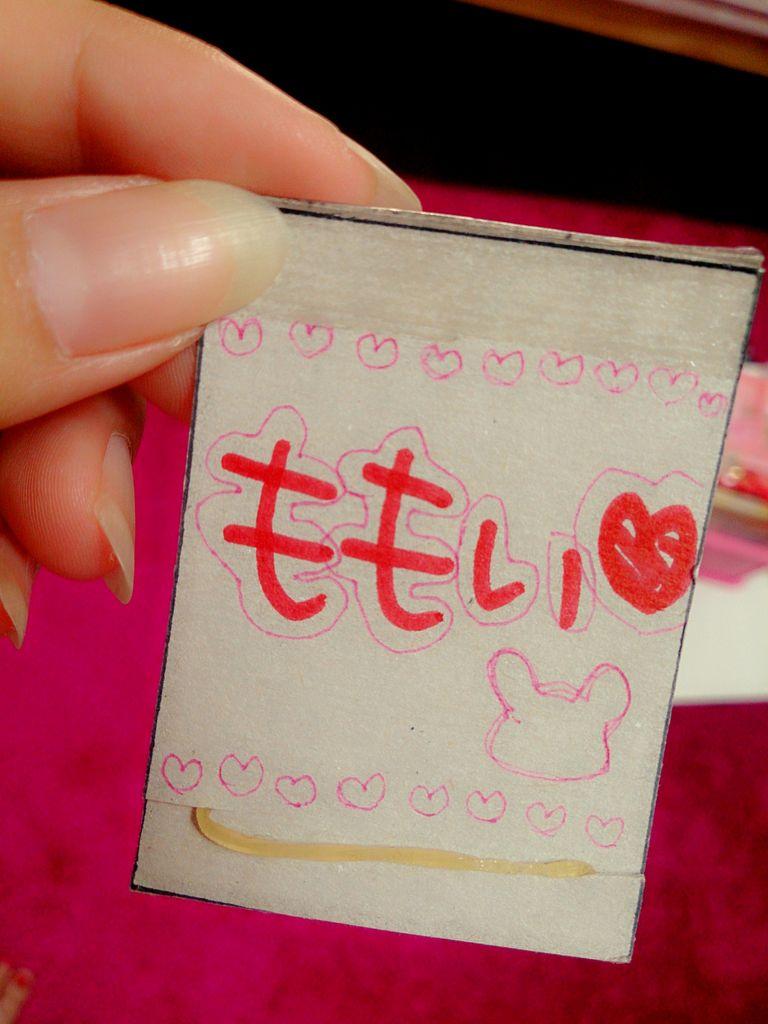 ももい♥